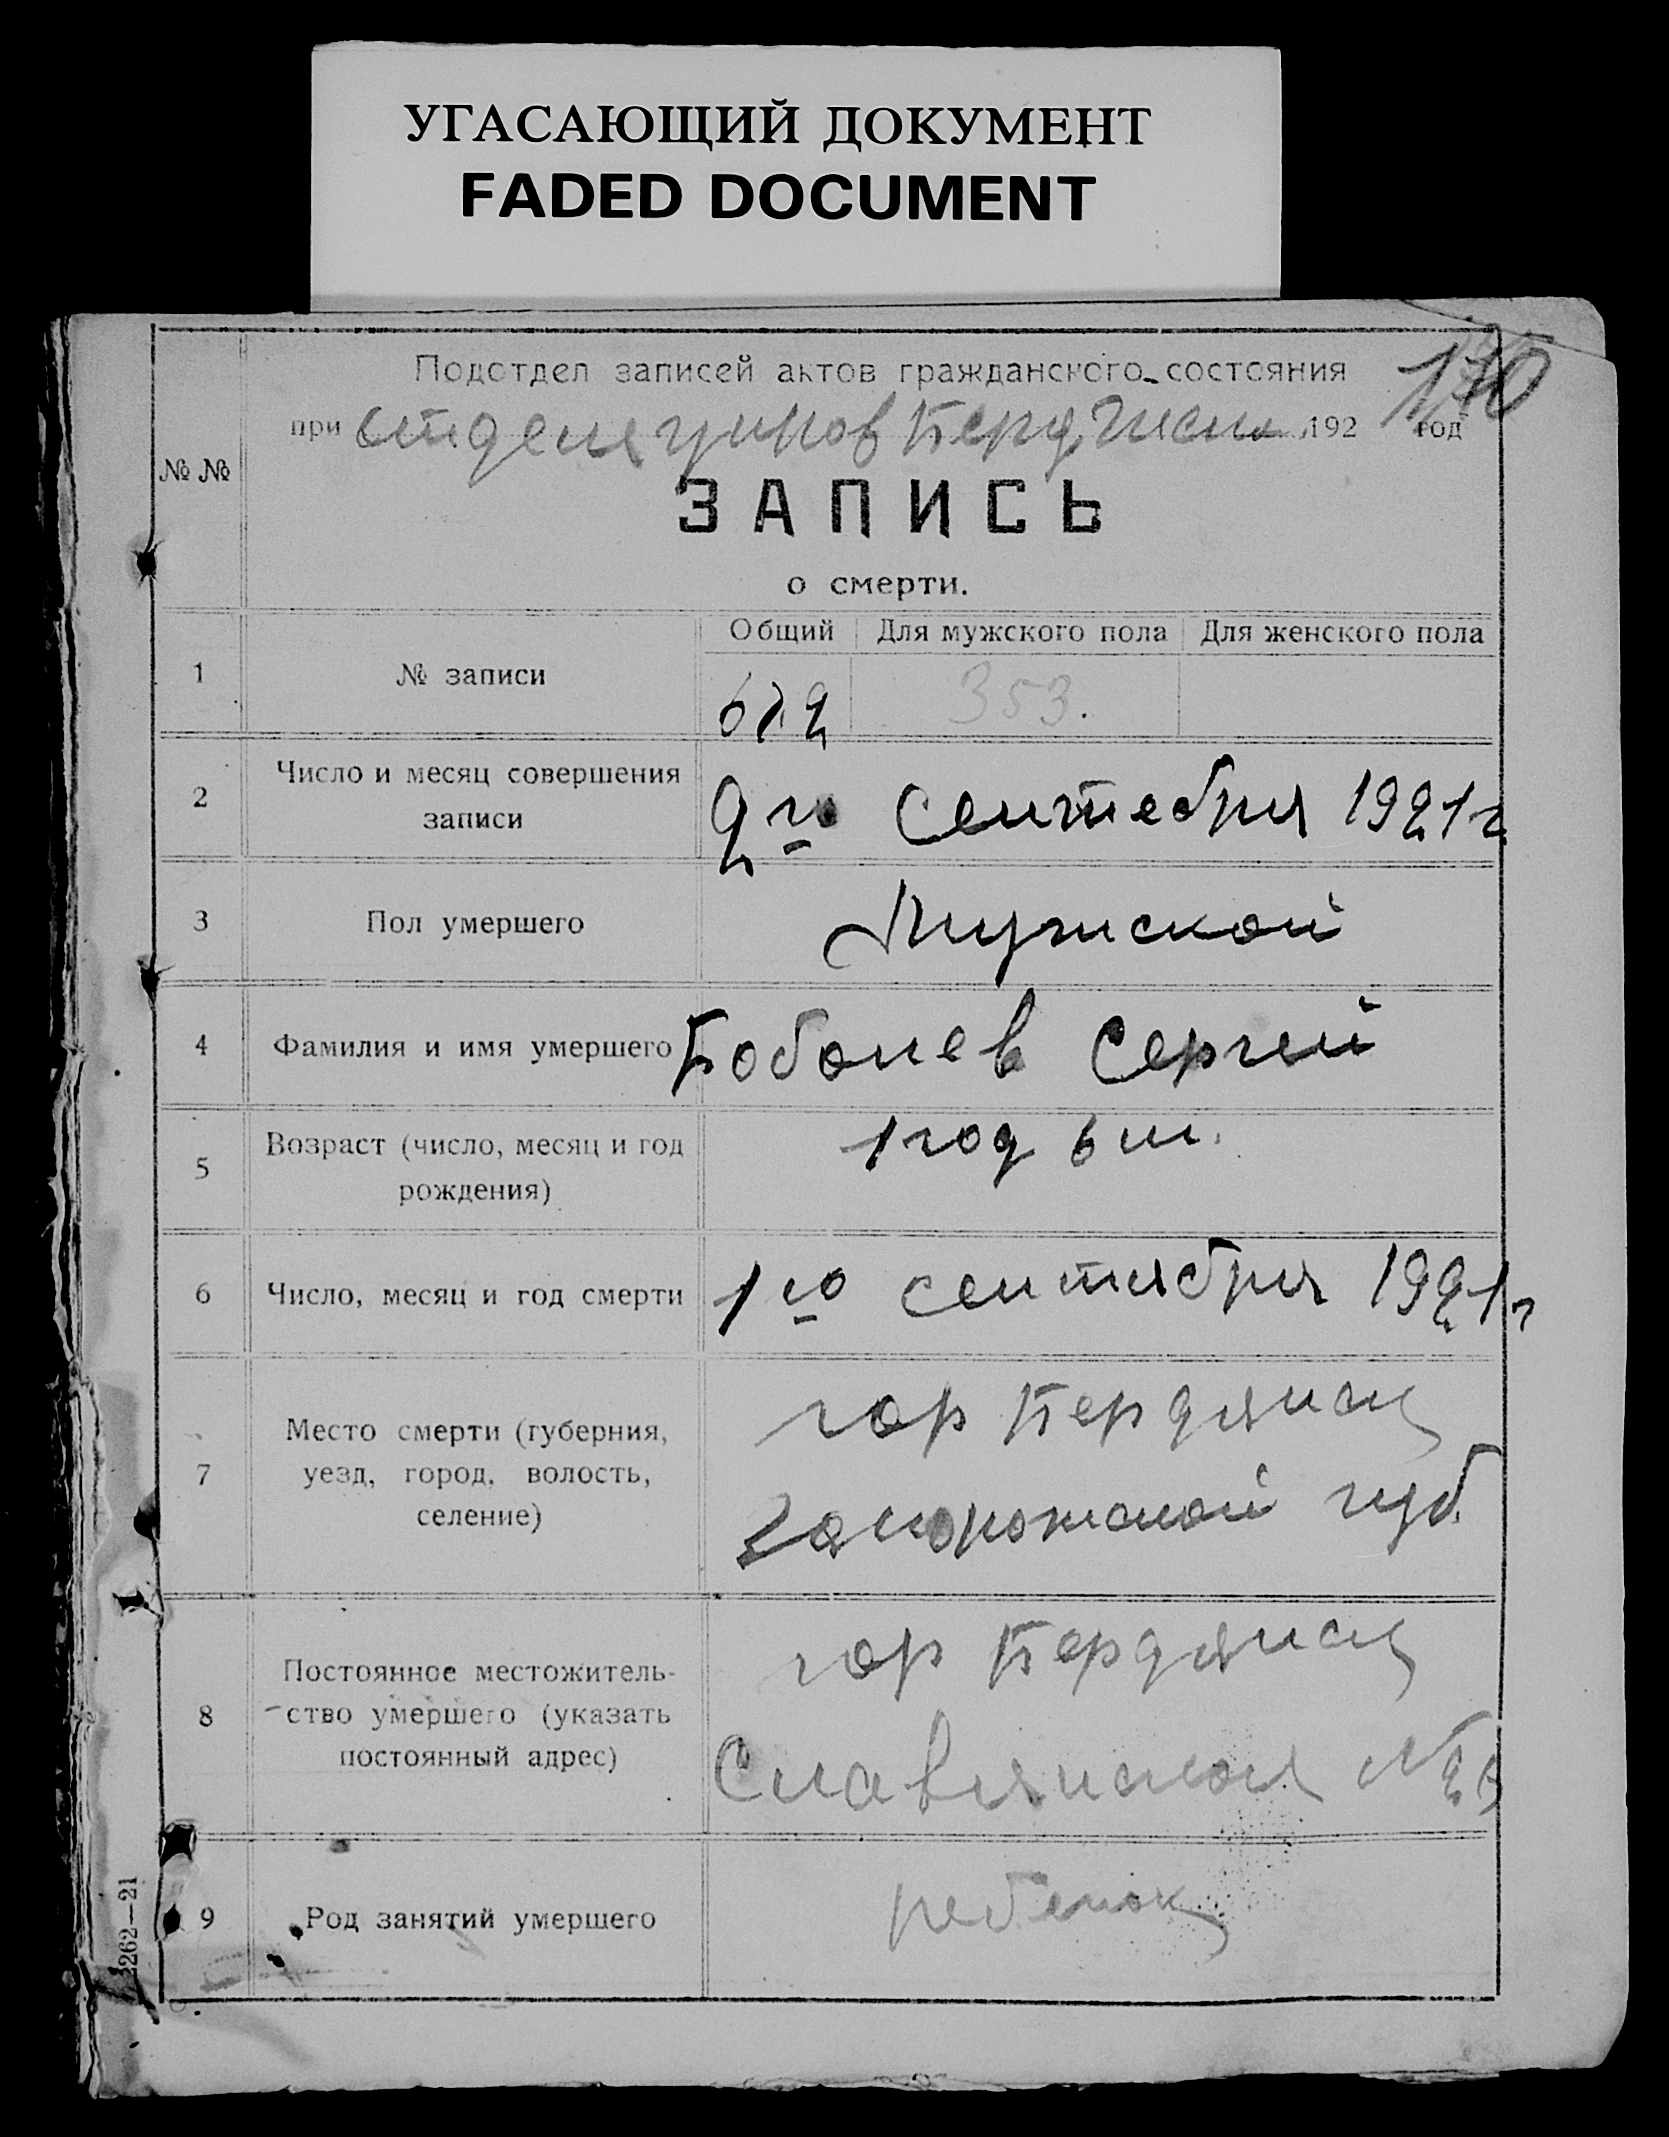 УГАСАЮЩИЙ ДОКУМЕНТ
FADED DOCUMENT
Подотдел записей актов гражданского состояния
170
при 192 год
№ №
ЗАПИСЬ
о смерти.
Общий Для мужского пола Для женского пола
1 № записи
353.
2 Число и месяц совершения записи
2го сентебря 1921 г
3 Пол умершего Мужской
4 Фамилия и имя умершего Сергей
5 Возраст (число, месяц и год рождения)
1 год 6 м.
6 Число, месяц и год смерти 1го сентября 1921 г
7 Место смерти (губерния, уезд, город, волость, селение)
гор Бердянск
Запорожской губ.
8 Постоянное местожитель-ство умершего (указать постоянный адрес)
гор Бердянск
Славянская №
9 Род занятий умершего ребенок
2262—21